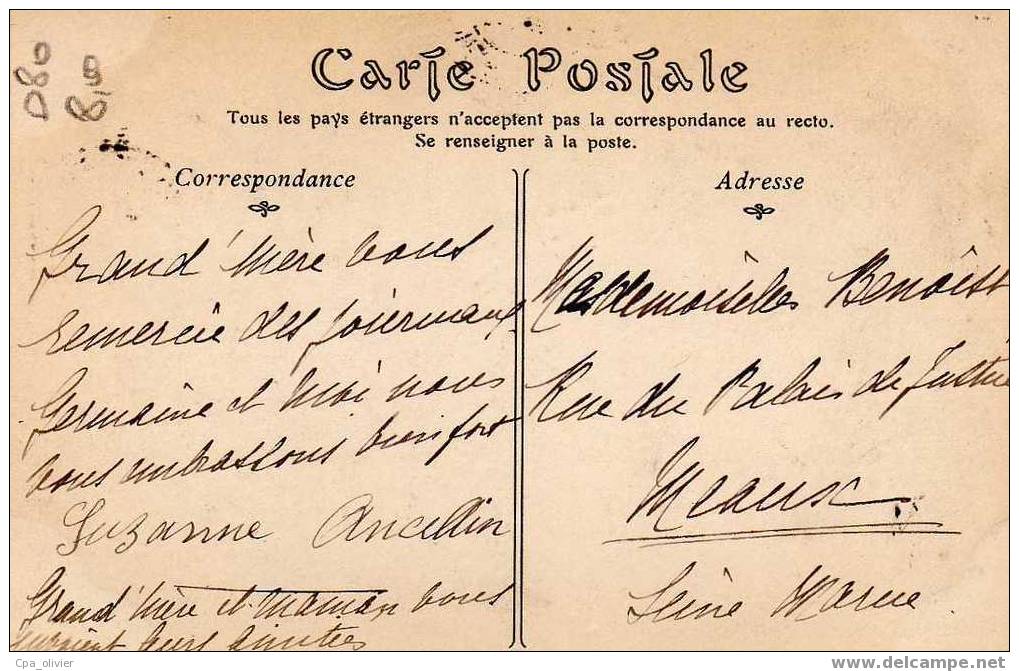 D80
8,9
Carte Postale
Tous les pays étrangers n'acceptent pas la correspondance au recto.
Se renseigner à la poste.
Correspondance
Grand'Mère vous
remercie des journaux
Germaine et moi nous
vous embrassons bien fort
Suzanne Ancellin
Grand'Mère et Maman vous
envoient leurs amitiés
Adresse
Mesdemoiselles Benoist
Rue du Palais de Justice
Meaux
Seine Marne
Cpa_olivier
www.delcampe.net